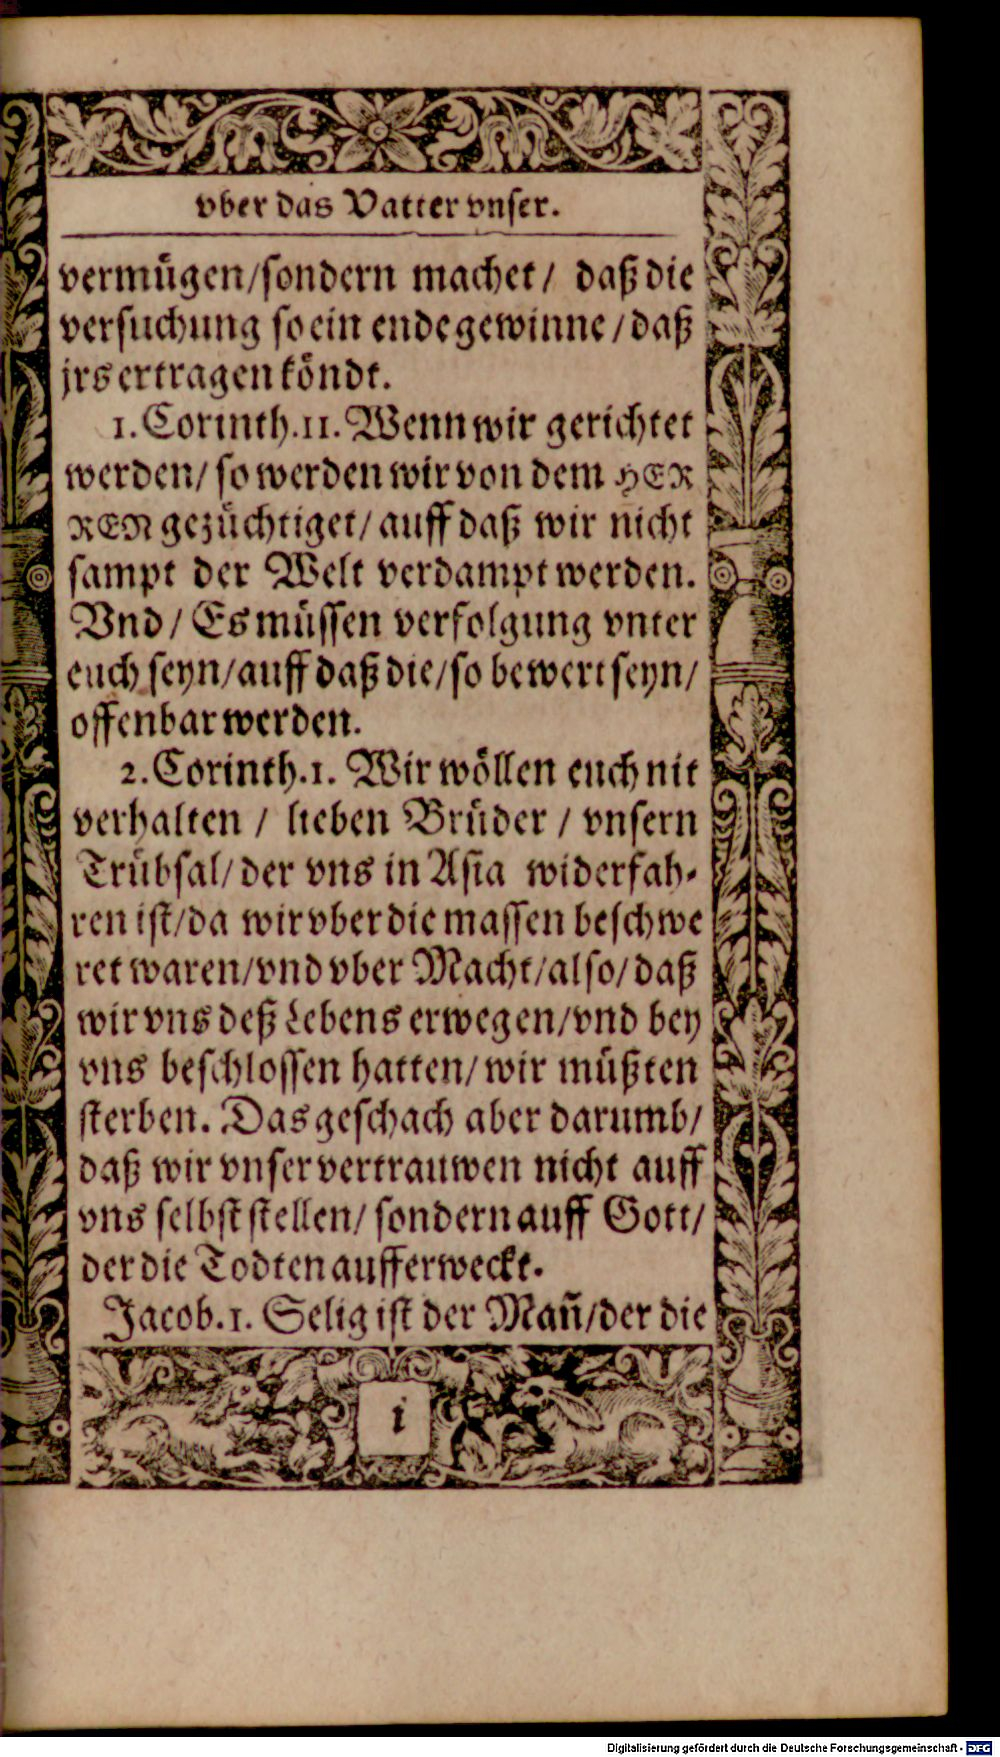 vber das Vatter vnser.
vermügen/sondern machet/ daß die
versuchung so ein ende gewinne/daß
jrs ertragen köndt.
1. Corinth.11. Wenn wir gerichtet
werden/ so werden wir von dem HER
REN gezüchtiget/ auff daß wir nicht
sampt der Welt verdampt werden.
Vnd/ Es müssen verfolgung vnter
euch seyn/auff daß die/so bewert seyn/
offenbar werden.
2. Corinth.1. Wir wöllen euch nit
verhalten / lieben Brüder / vnsern
Trübsal/ der vns in Asia widerfah-
ren ist/da wir vber die massen beschwe
ret waren/vnd vber Macht/also/daß
wir vns deß Lebens erwegen/vnd bey
vns beschlossen hatten/ wir müßten
sterben. Das geschach aber darumb/
daß wir vnser vertrauwen nicht auff
vns selbst stellen/ sondern auff Gott/
der die Todten aufferweckt.
Jacob.1. Selig ist der Mañ/der die
i
Digitalisierung gefördert durch die Deutsche Forschungsgemeinschaft - DFG